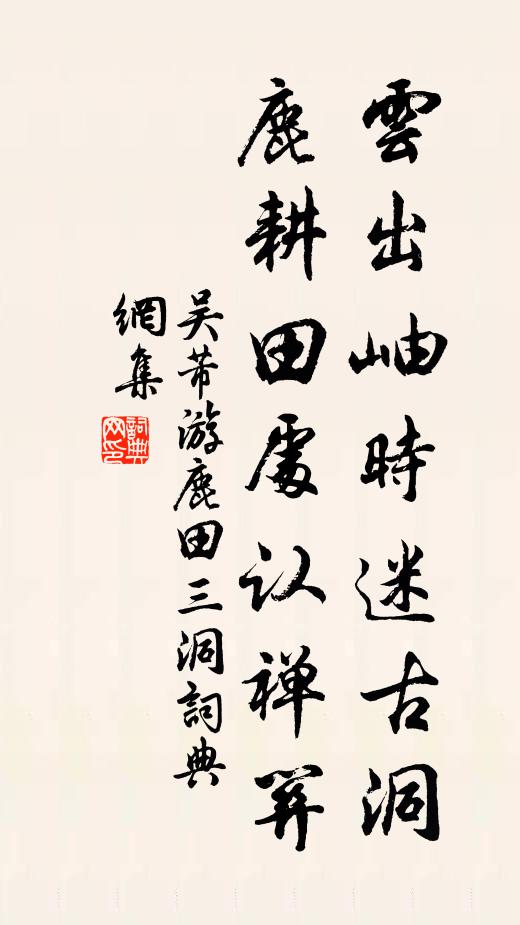 雲出岫時迷古洞
鹿耕田處认禅關
吴芾游鹿田三洞詞典
網集
詞典
网印